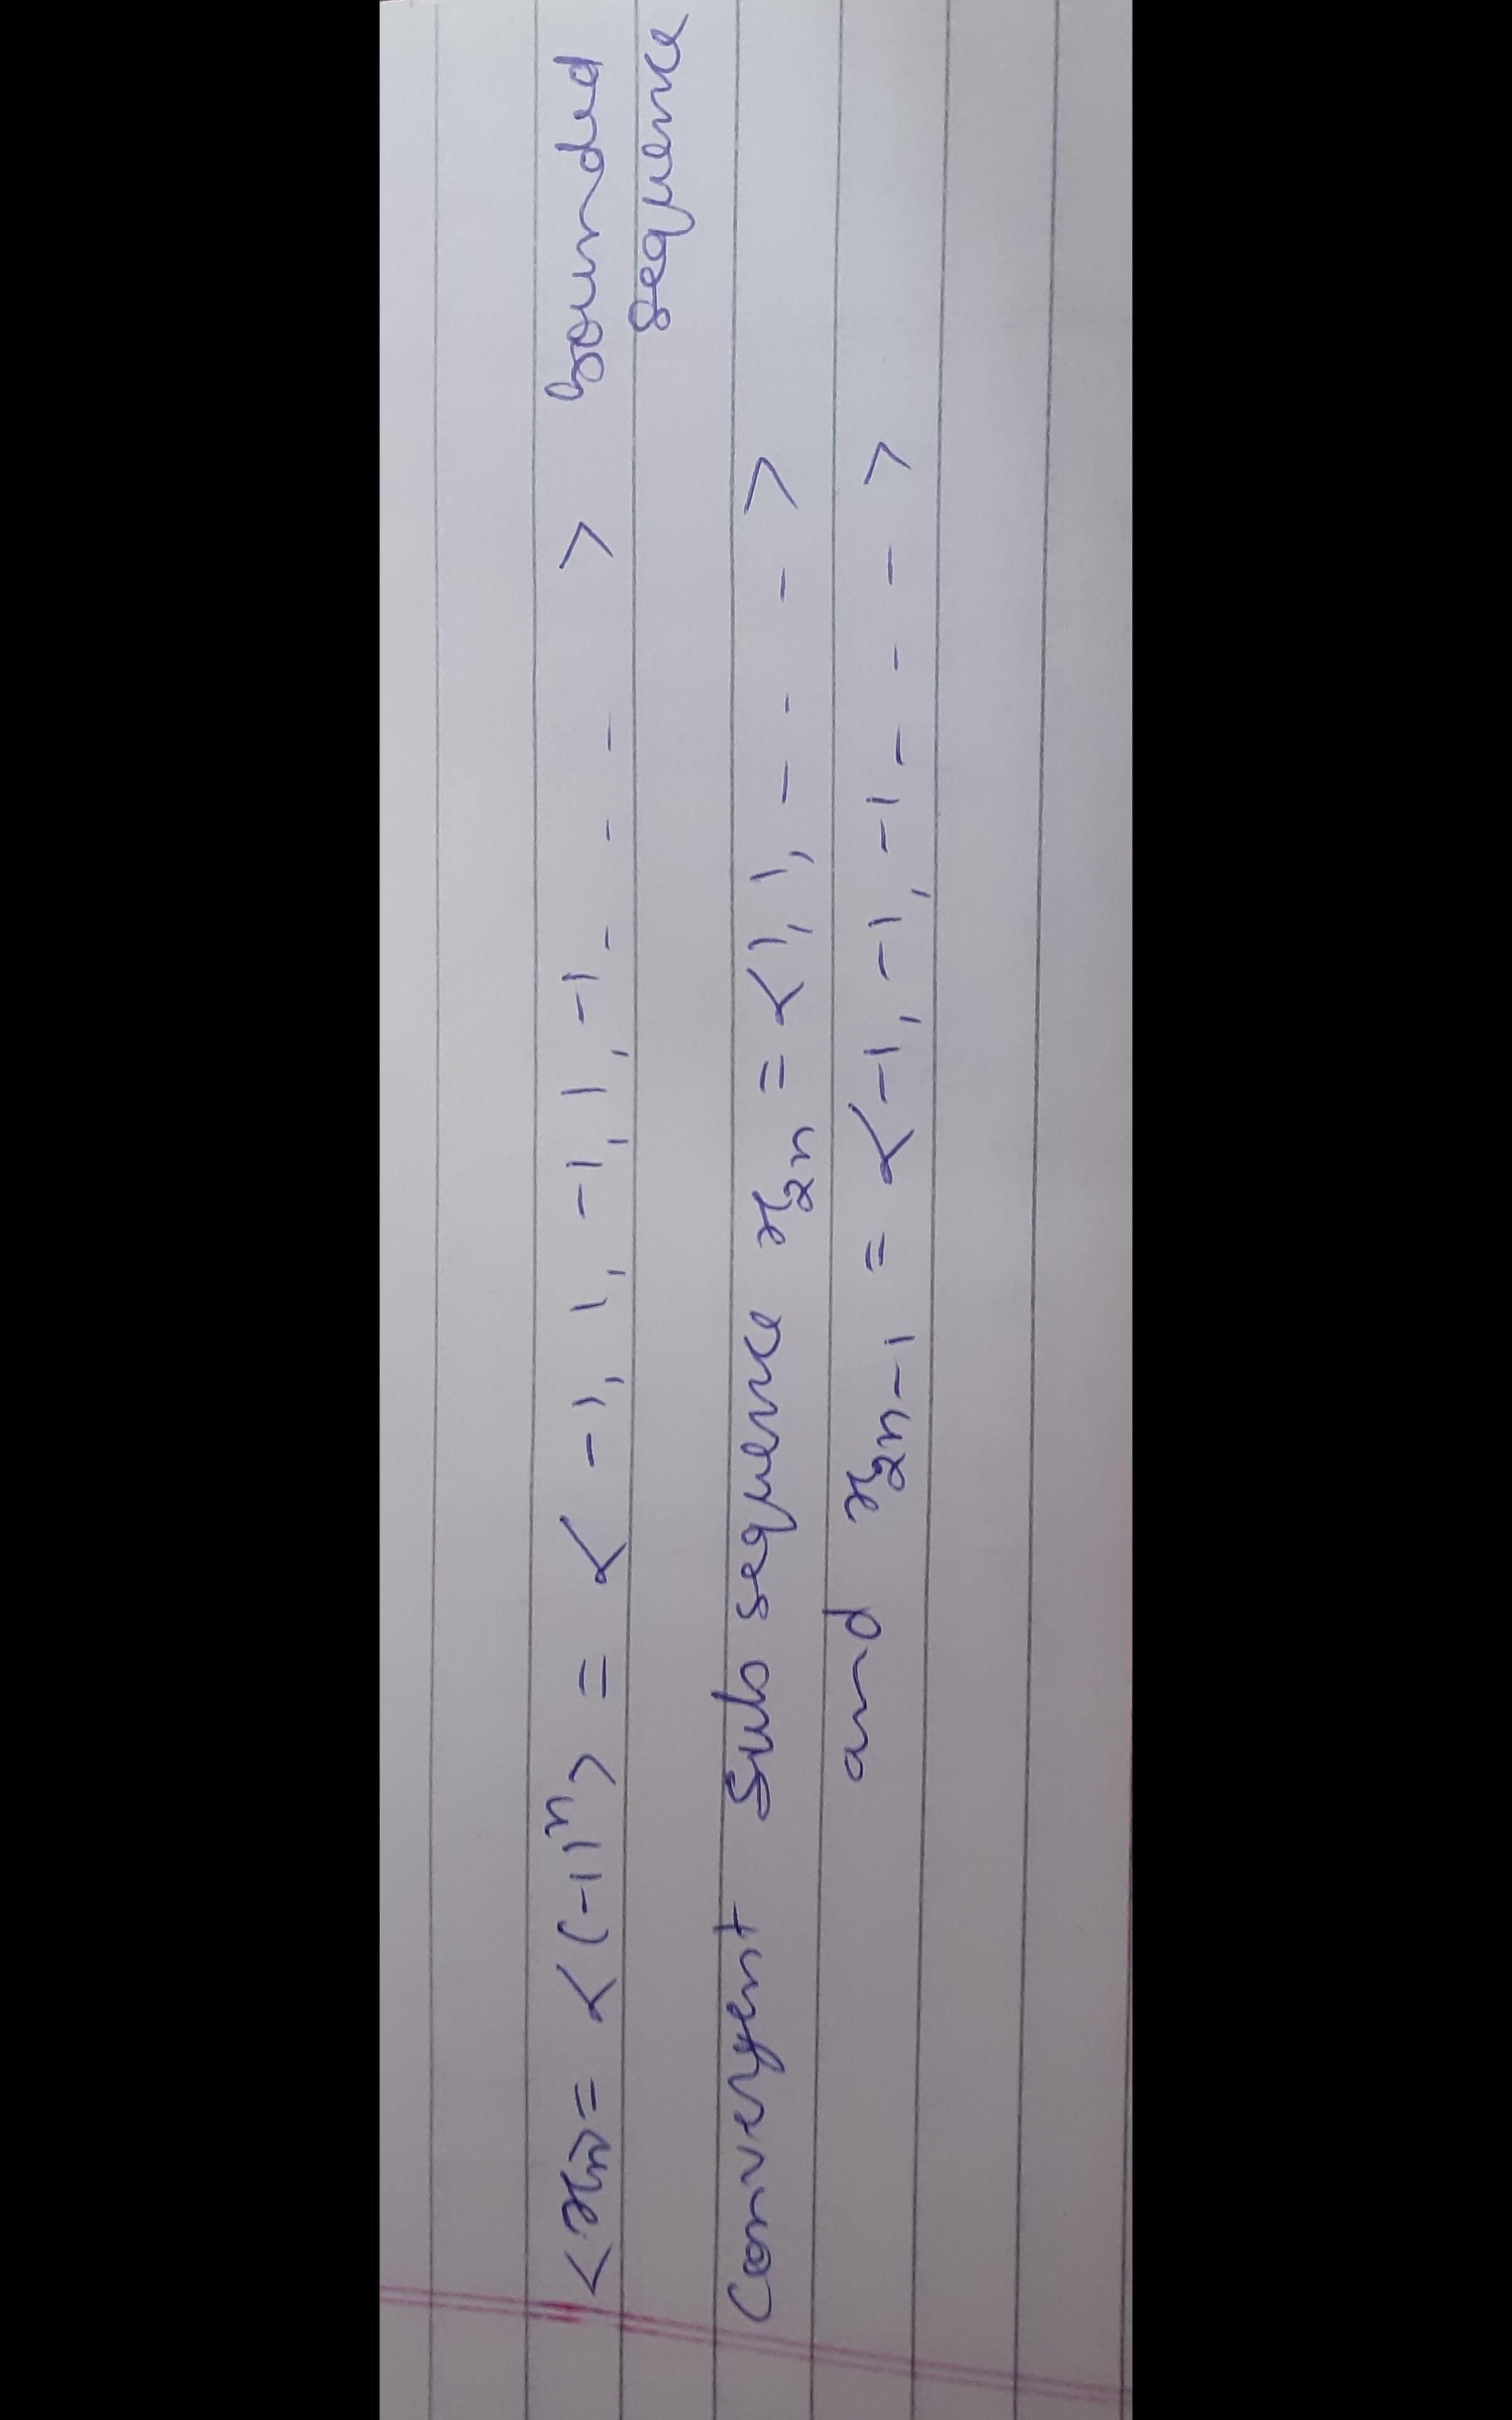 <xn> = <(-1)ⁿ> = < -1, 1, -1, 1, -1 - - - > bounded
sequence
Convergent Subsequence x₂ₙ = <1, 1, - - - >
and x₂ₙ₋₁ = <-1, -1, -1 - - - >